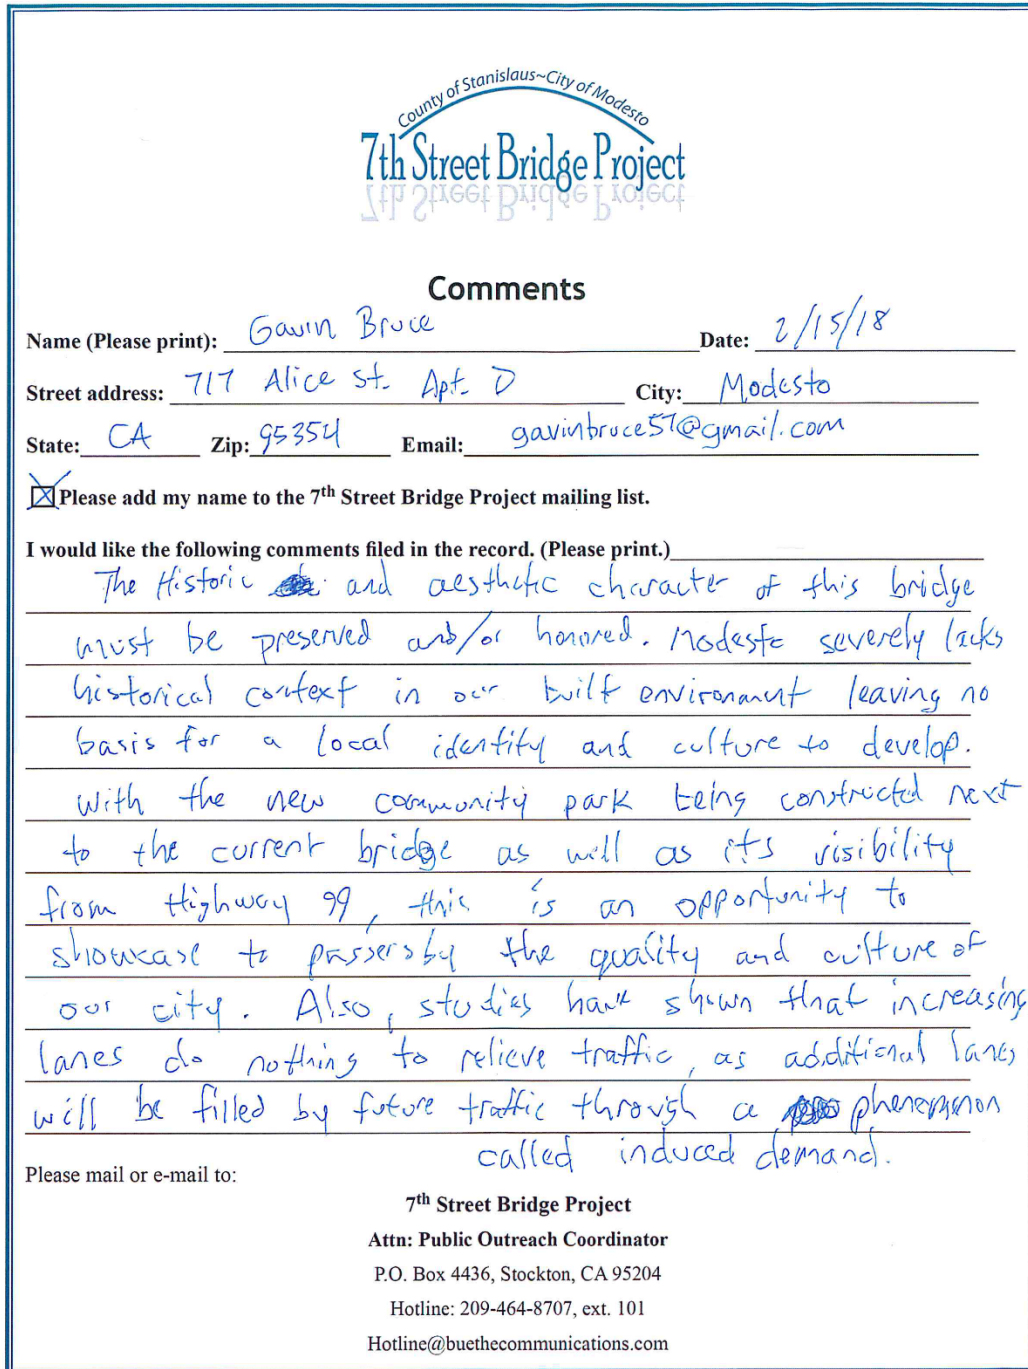 County of Stanislaus~City of Modesto
7th Street Bridge Project
Comments
Name (Please print): Gavin Bruce Date: 2/15/18
Street address: 717 Alice St. Apt. D City: Modesto
State: CA Zip: 95354 Email: gavinbruce57@gmail.com
Please add my name to the 7th Street Bridge Project mailing list.
I would like the following comments filed in the record. (Please print.)
The Historic and aesthetic character of this bridge
must be preserved and/or honored. Modesto severely lacks
historical context in our built environment leaving no
basis for a local identity and culture to develop.
With the new community park being constructed next
to the current bridge as well as its visibility
from Highway 99, this is an opportunity to
showcase to passersby the quality and culture of
our city. Also, studies have shown that increasing
lanes do nothing to relieve traffic, as additional lanes
will be filled by future traffic through a phenomenon
called induced demand.
Please mail or e-mail to:
7th Street Bridge Project
Attn: Public Outreach Coordinator
P.O. Box 4436, Stockton, CA 95204
Hotline: 209-464-8707, ext. 101
Hotline@buethecommunications.com